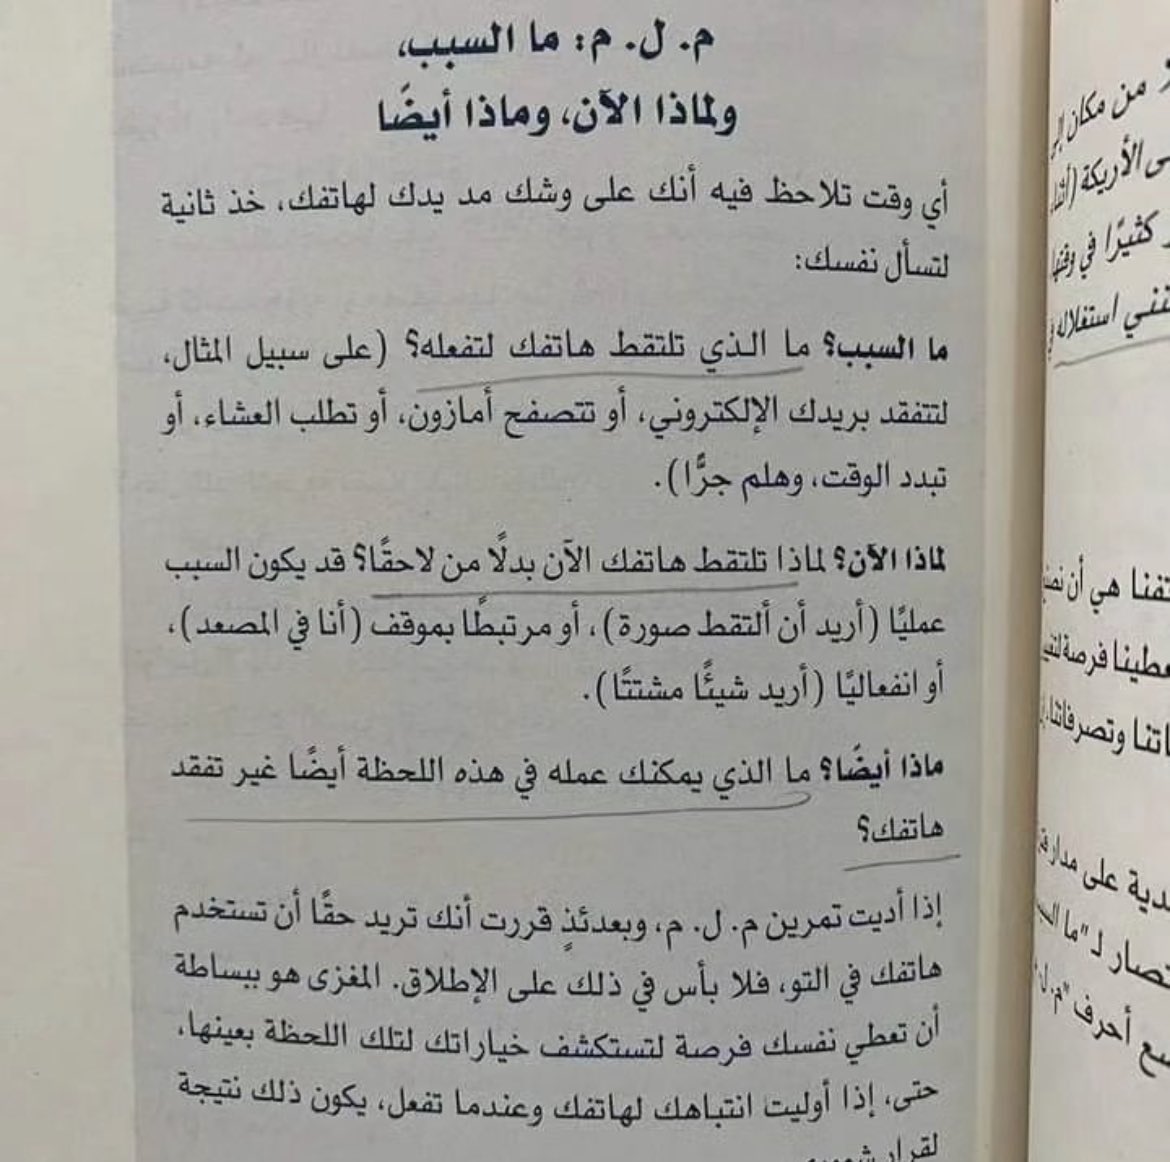 م. ل. م: ما السبب،
ولماذا الآن، وماذا أيضًا
أي وقت تلاحظ فيه أنك على وشك مد يدك لهاتفك، خذ ثانية
لتسأل نفسك:
ما السبب؟ ما الذي تلتقط هاتفك لتفعله؟ (على سبيل المثال،
لتتفقد بريدك الإلكتروني، أو تتصفح أمازون، أو تطلب العشاء، أو
تبدد الوقت، وهلم جرًّا).
لماذا الآن؟ لماذا تلتقط هاتفك الآن بدلًا من لاحقًا؟ قد يكون السبب
عمليًا (أريد أن ألتقط صورة)، أو مرتبطًا بموقف (أنا في المصعد)،
أو انفعاليًا (أريد شيئًا مشتتًا).
ماذا أيضًا؟ ما الذي يمكنك عمله في هذه اللحظة أيضًا غير تفقد
هاتفك؟
إذا أديت تمرين م. ل. م، وبعدئذٍ قررت أنك تريد حقًّا أن تستخدم
هاتفك في التو، فلا بأس في ذلك على الإطلاق. المغزى هو ببساطة
أن تعطي نفسك فرصة لتستكشف خياراتك لتلك اللحظة بعينها،
حتى، إذا أوليت انتباهك لهاتفك وعندما تفعل، يكون ذلك نتيجة
لقرار
من مكان إلى
الأريكة
كثيرًا في وقتها
استغلاله
هي أن
فرصة
وتصرفاتنا
على مدار
لـ "ما
أحرف "م. ل.